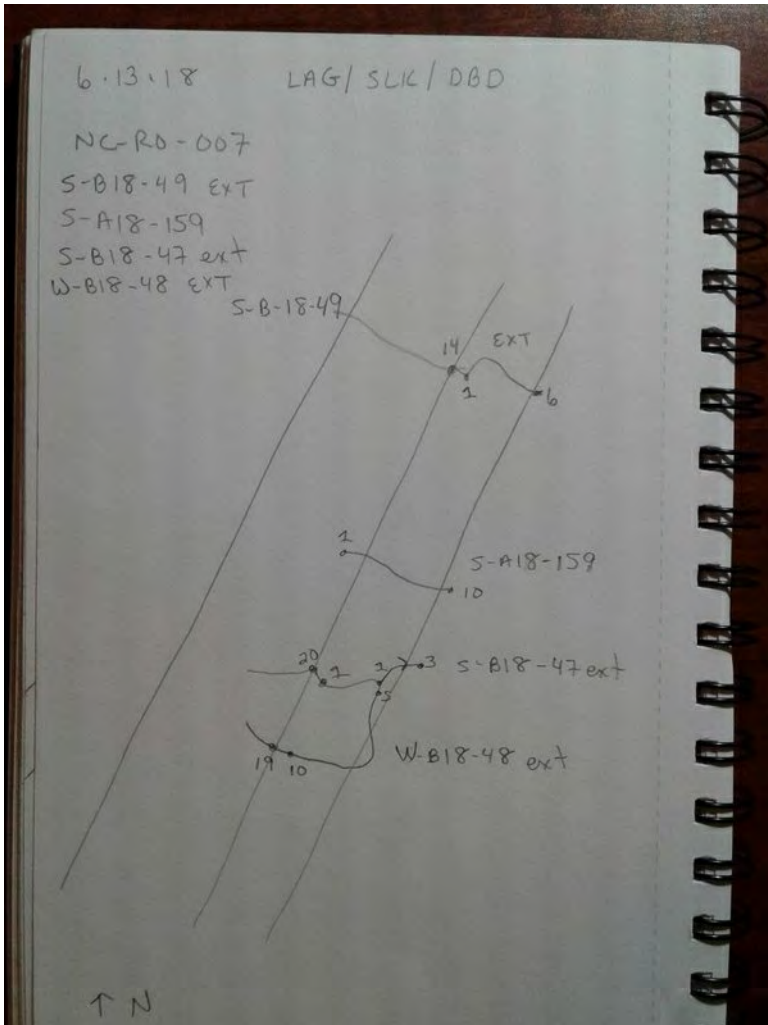 6.13.18 LAG/ SLK/ DBD
NC-RD-007
S-B18-49 EXT
S-A18-159
S-B18-47 ext
W-B18-48 EXT
S-B-18-49
14 EXT
1 6
1
S-A18-159
10
20 1 1 3 S-B18-47 ext
5
19 10 W-B18-48 ext
↑ N